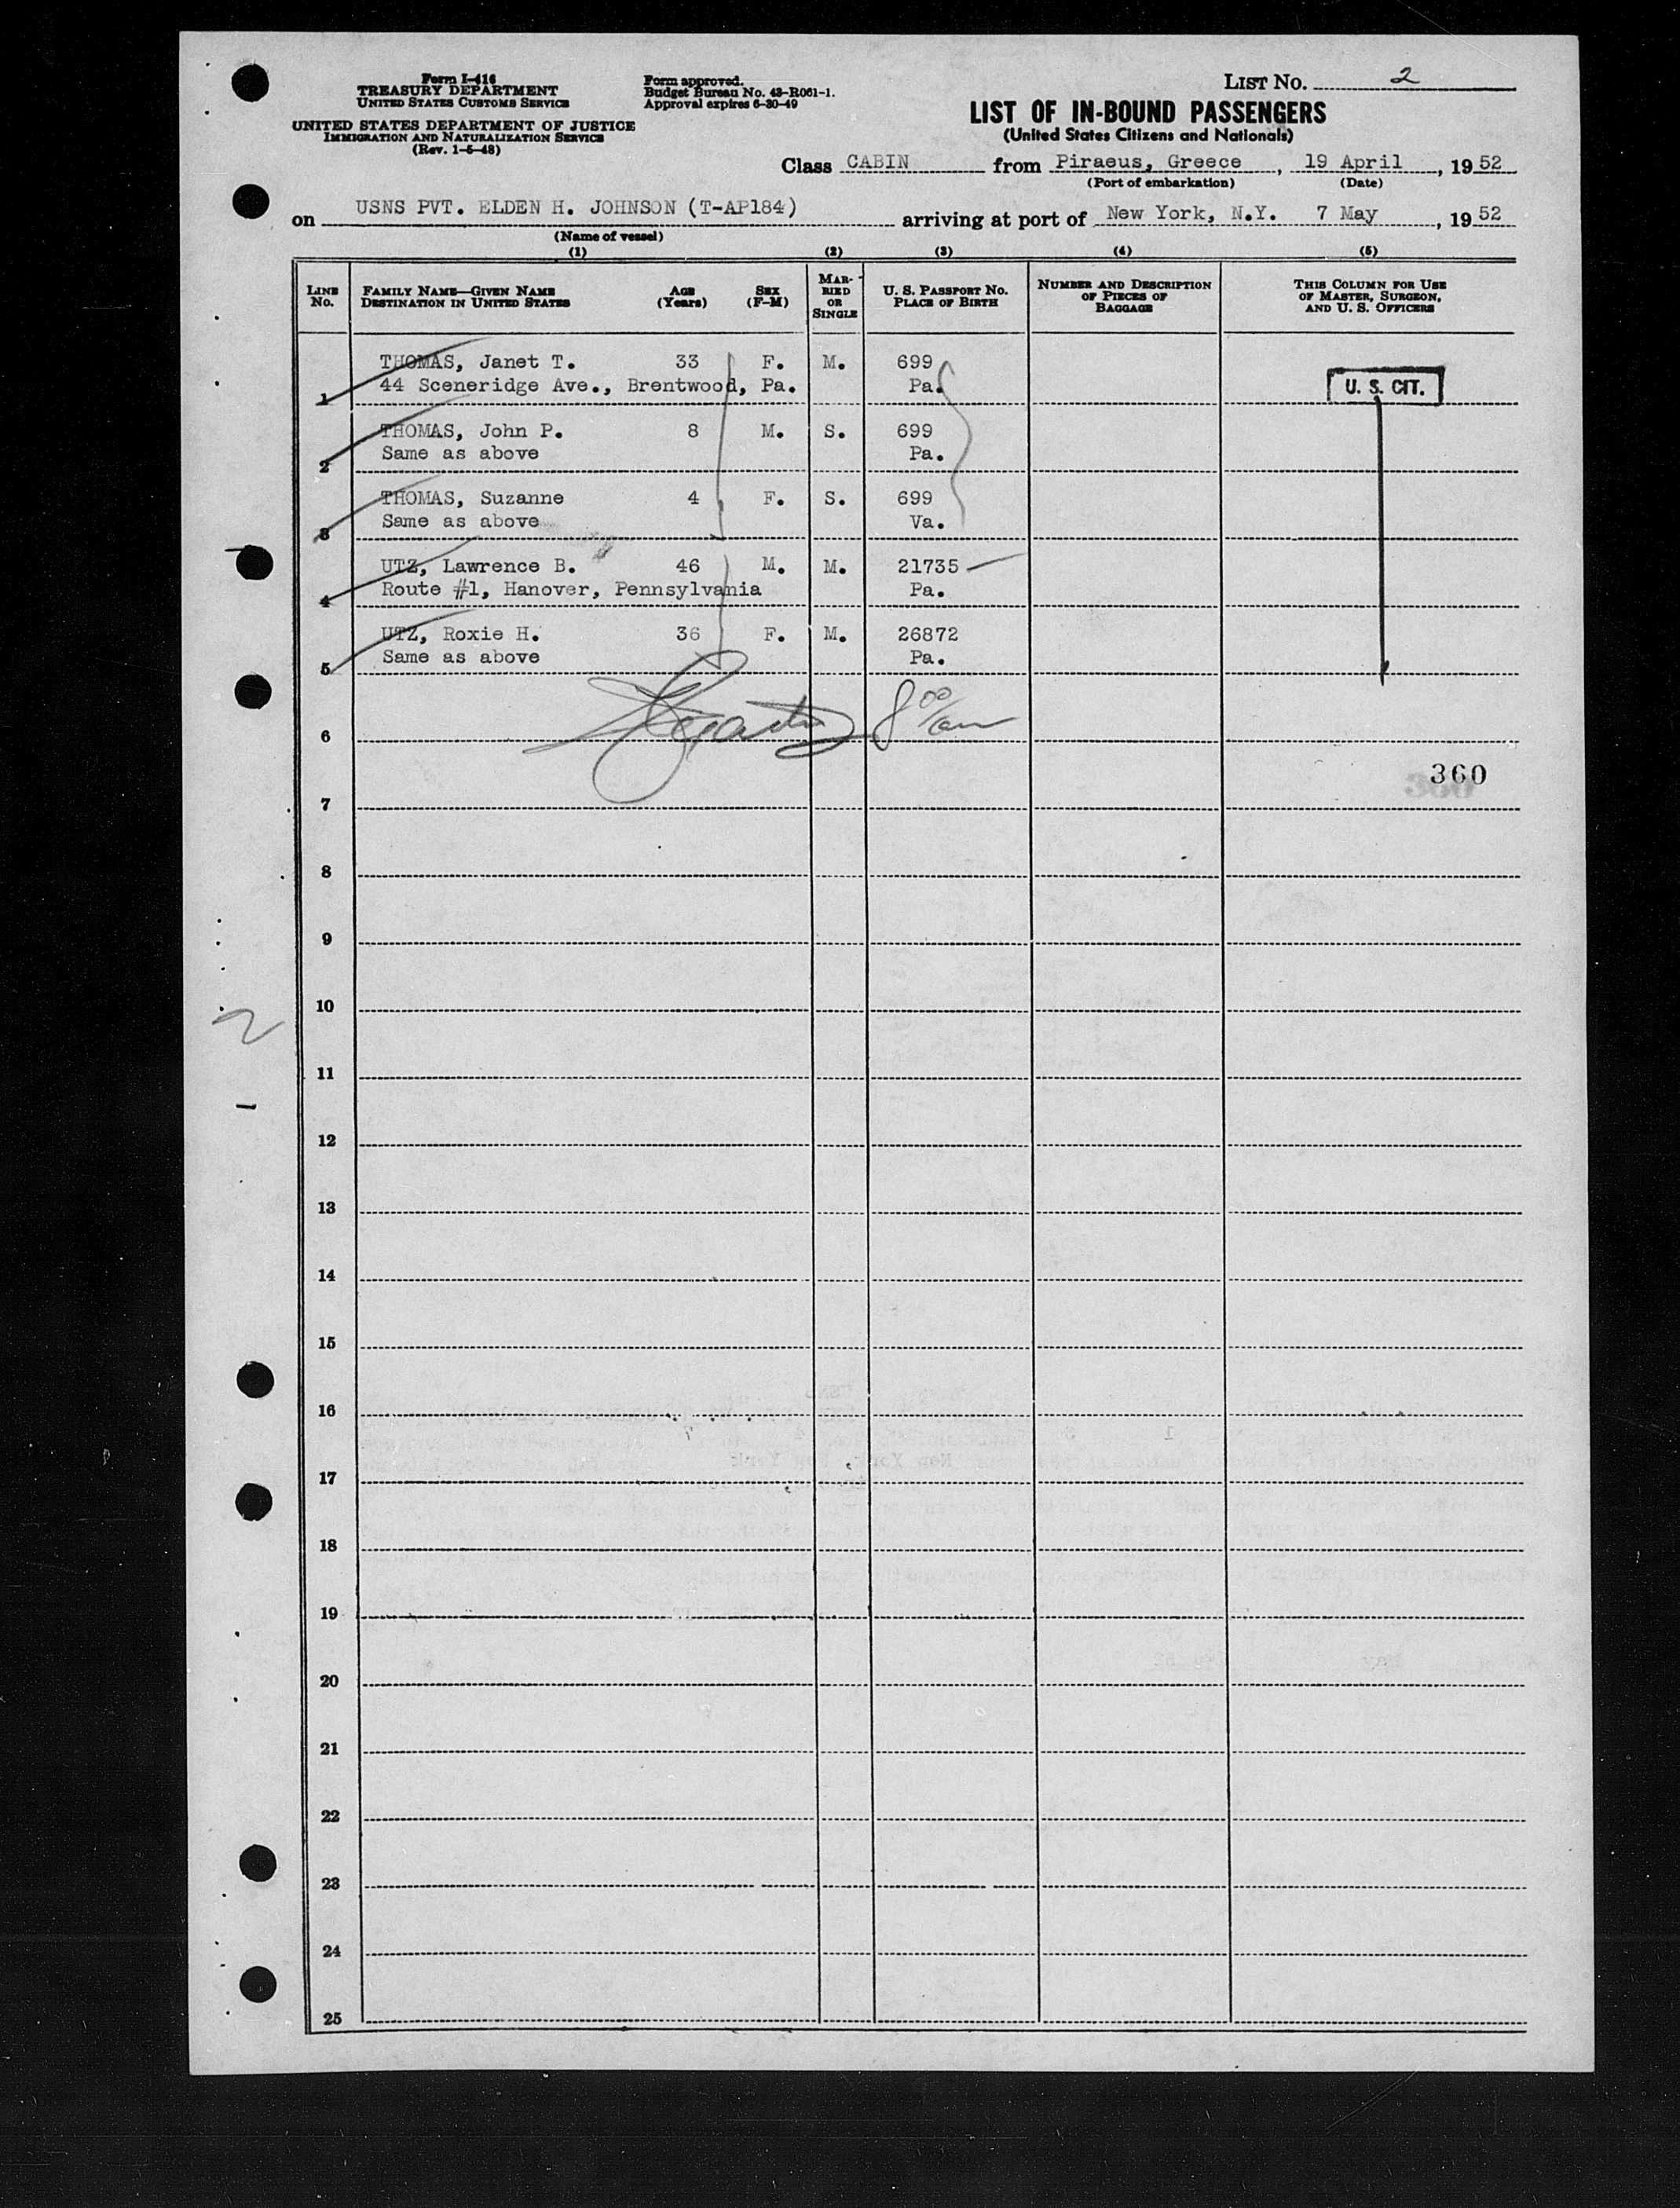 Form I-416
TREASURY DEPARTMENT
UNITED STATES CUSTOMS SERVICE
UNITED STATES DEPARTMENT OF JUSTICE
IMMIGRATION AND NATURALIZATION SERVICE
(Rev. 1-5-48)
Form approved.
Budget Bureau No. 43-R061-1.
Approval expires 6-30-49
LIST No. 2
LIST OF IN-BOUND PASSENGERS
(United States Citizens and Nationals)
Class CABIN from Piraeus, Greece, 19 April, 1952
(Port of embarkation) (Date)
on USNS PVT. ELDEN H. JOHNSON (T-AP184) arriving at port of New York, N.Y. 7 May, 1952
(Name of vessel)
(1) (2) (3) (4) (5)
LINE No. FAMILY NAME—GIVEN NAME DESTINATION IN UNITED STATES AGE (Years) SEX (F-M) MARRIED OR SINGLE U. S. PASSPORT No. PLACE OF BIRTH NUMBER AND DESCRIPTION OF PIECES OF BAGGAGE THIS COLUMN FOR USE OF MASTER, SURGEON, AND U. S. OFFICERS
THOMAS, Janet T. 33 F. M. 699
1 44 Sceneridge Ave., Brentwood, Pa. Pa. U. S. CIT.
THOMAS, John P. 8 M. S. 699
2 Same as above Pa.
THOMAS, Suzanne 4 F. S. 699
3 Same as above Va.
UTZ, Lawrence B. 46 M. M. 21735
4 Route #1, Hanover, Pennsylvania Pa.
UTZ, Roxie H. 36 F. M. 26872
5 Same as above Pa.
8 00/am
6
360
7
8
9
10
2
11
12
13
14
15
16
17
18
19
20
21
22
23
24
25